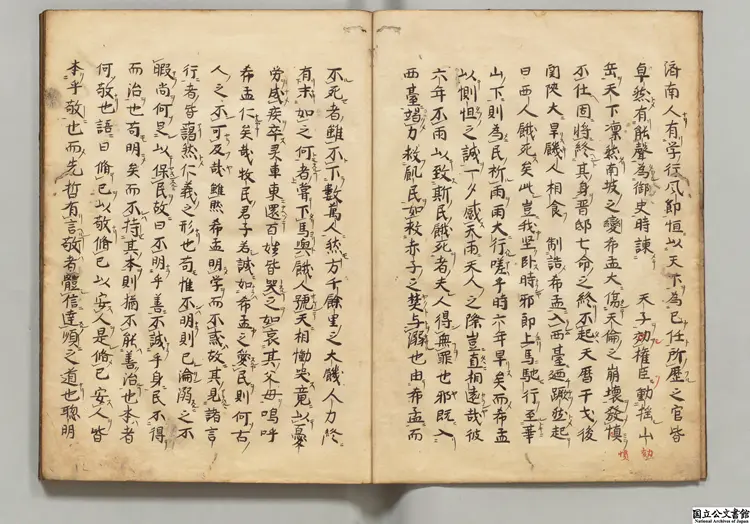 済南人有学行風節恒以天下為己任所歴之官皆
卓然有能聲為御史時諌 天子劾權臣動揺山
岳天下凛然南坡之變希孟大傷天倫之崩壊發慎
不仕固將終其身晋邸七命之終不起天暦干戈後
関陜大旱饑人相食 制誥希孟入西臺廼蹶然起
曰西人餓死矣此豈我堅卧時邪即上馬馳行至華
山下則為民祈雨雨大行嗟乎時六年旱矣而希孟
以惻怛之誠一夕感天雨天人之際豈直相遠哉彼
六年不雨以致斯民餓死者夫人得無罪也邪既入
西臺竭力救飢民如救赤子之焚与溺也由希孟而
劾
憤
不死者雖不下數萬人然方千餘里之大饑人力終
有末如之何者嘗下馬與餓人號天相慟哭竟以憂
労感疾卒霊車東還百姓皆哭之如哀其父母嗚呼
希孟仁矣哉牧民君子為誠如希孟之愛民則何古
人之不可及哉雖然希孟明学而不惑故其見諸言
行者皆藹然仁義之形也苟惟不明則已淪溺之不
暇尚何足以保民故曰不明乎善不誠乎身民不得
而治也苟明矣而不持其本則猶不能善治也本者
何敬也語曰脩己以敬脩己以安人是脩己安人皆
本乎敬也而先哲有言敬者體信達順之道也聡明
国立公文書館
National Archives of Japan